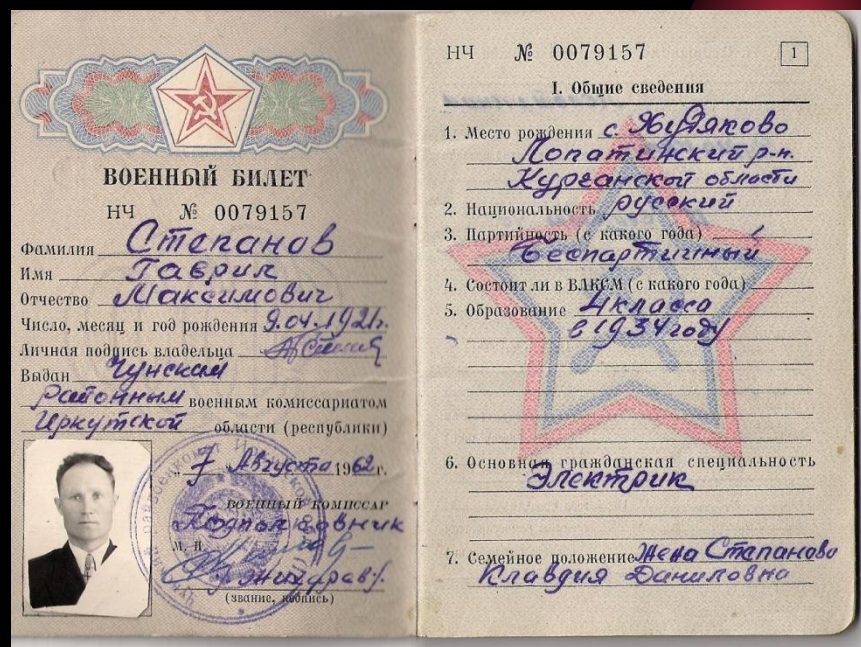 ВОЕННЫЙ БИЛЕТ
НЧ № 0079157
Фамилия Степанов
Имя Гаврил
Отчество Максимович
Число, месяц и год рождения 9.04.1921г.
Личная подпись владельца
Выдан Чунским
районным военным комиссариатом
Иркутской области (республики)
„7 Августа 1962 г.
ВОЕННЫЙ КОМИССАР
Подполковник
М. П.
(звание, подпись)
НЧ № 0079157 1
I. Общие сведения
1. Место рождения с.
Лопатинский р-н.
Курганской области
2. Национальность русский
3. Партийность (с какого года)
Беспартийный
4. Состоит ли в ВЛКСМ (с какого года)
5. Образование 4 класса
в 1934 году
6. Основная гражданская специальность
Электрик
7. Семейное положение Жена Степанова
Клавдия Даниловна